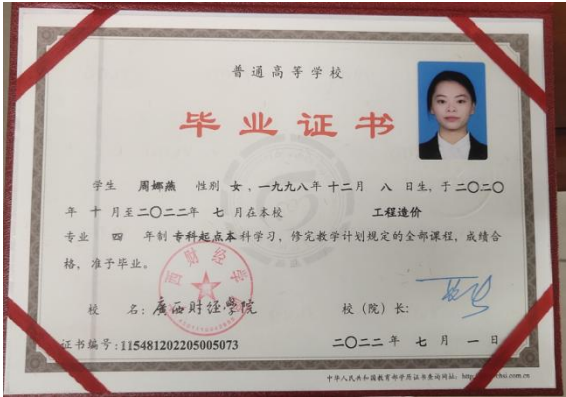 普通高等学校
毕业证书
学生 周娜燕 性别 女，一九九八年 十二月 八 日生，于二〇二〇
年 十 月至二〇二二年 七 月在本校 工程造价
专业 四 年制 专科起点本科学习，修完教学计划规定的全部课程，成绩合
格，准予毕业。
校 名：廣西财经学院 校（院）长：
证书编号：115481202205005073 二〇二二年 七 月 一 日
中华人民共和国教育部学历证书查询网址：